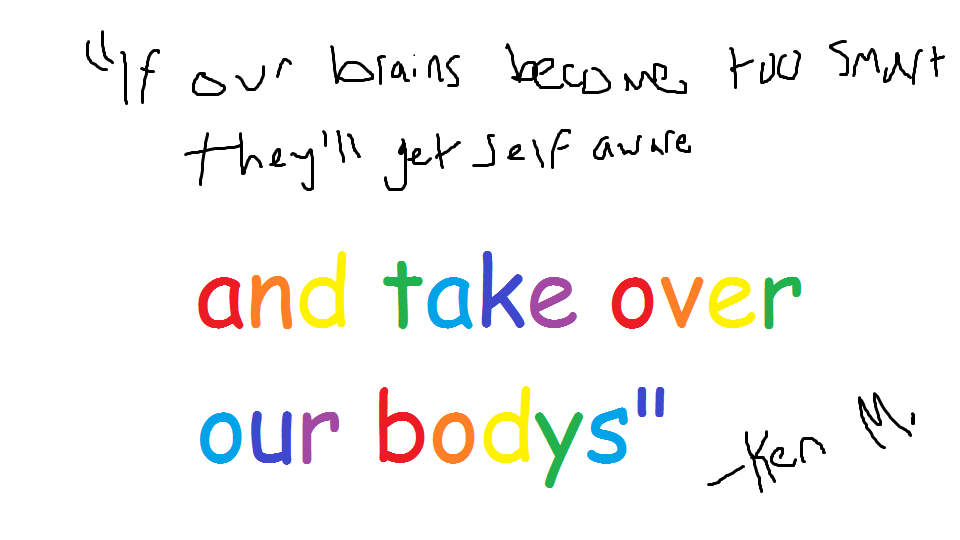 "If our brains become too smart
they'll get self aware
and take over
our bodys"
-Ken M.